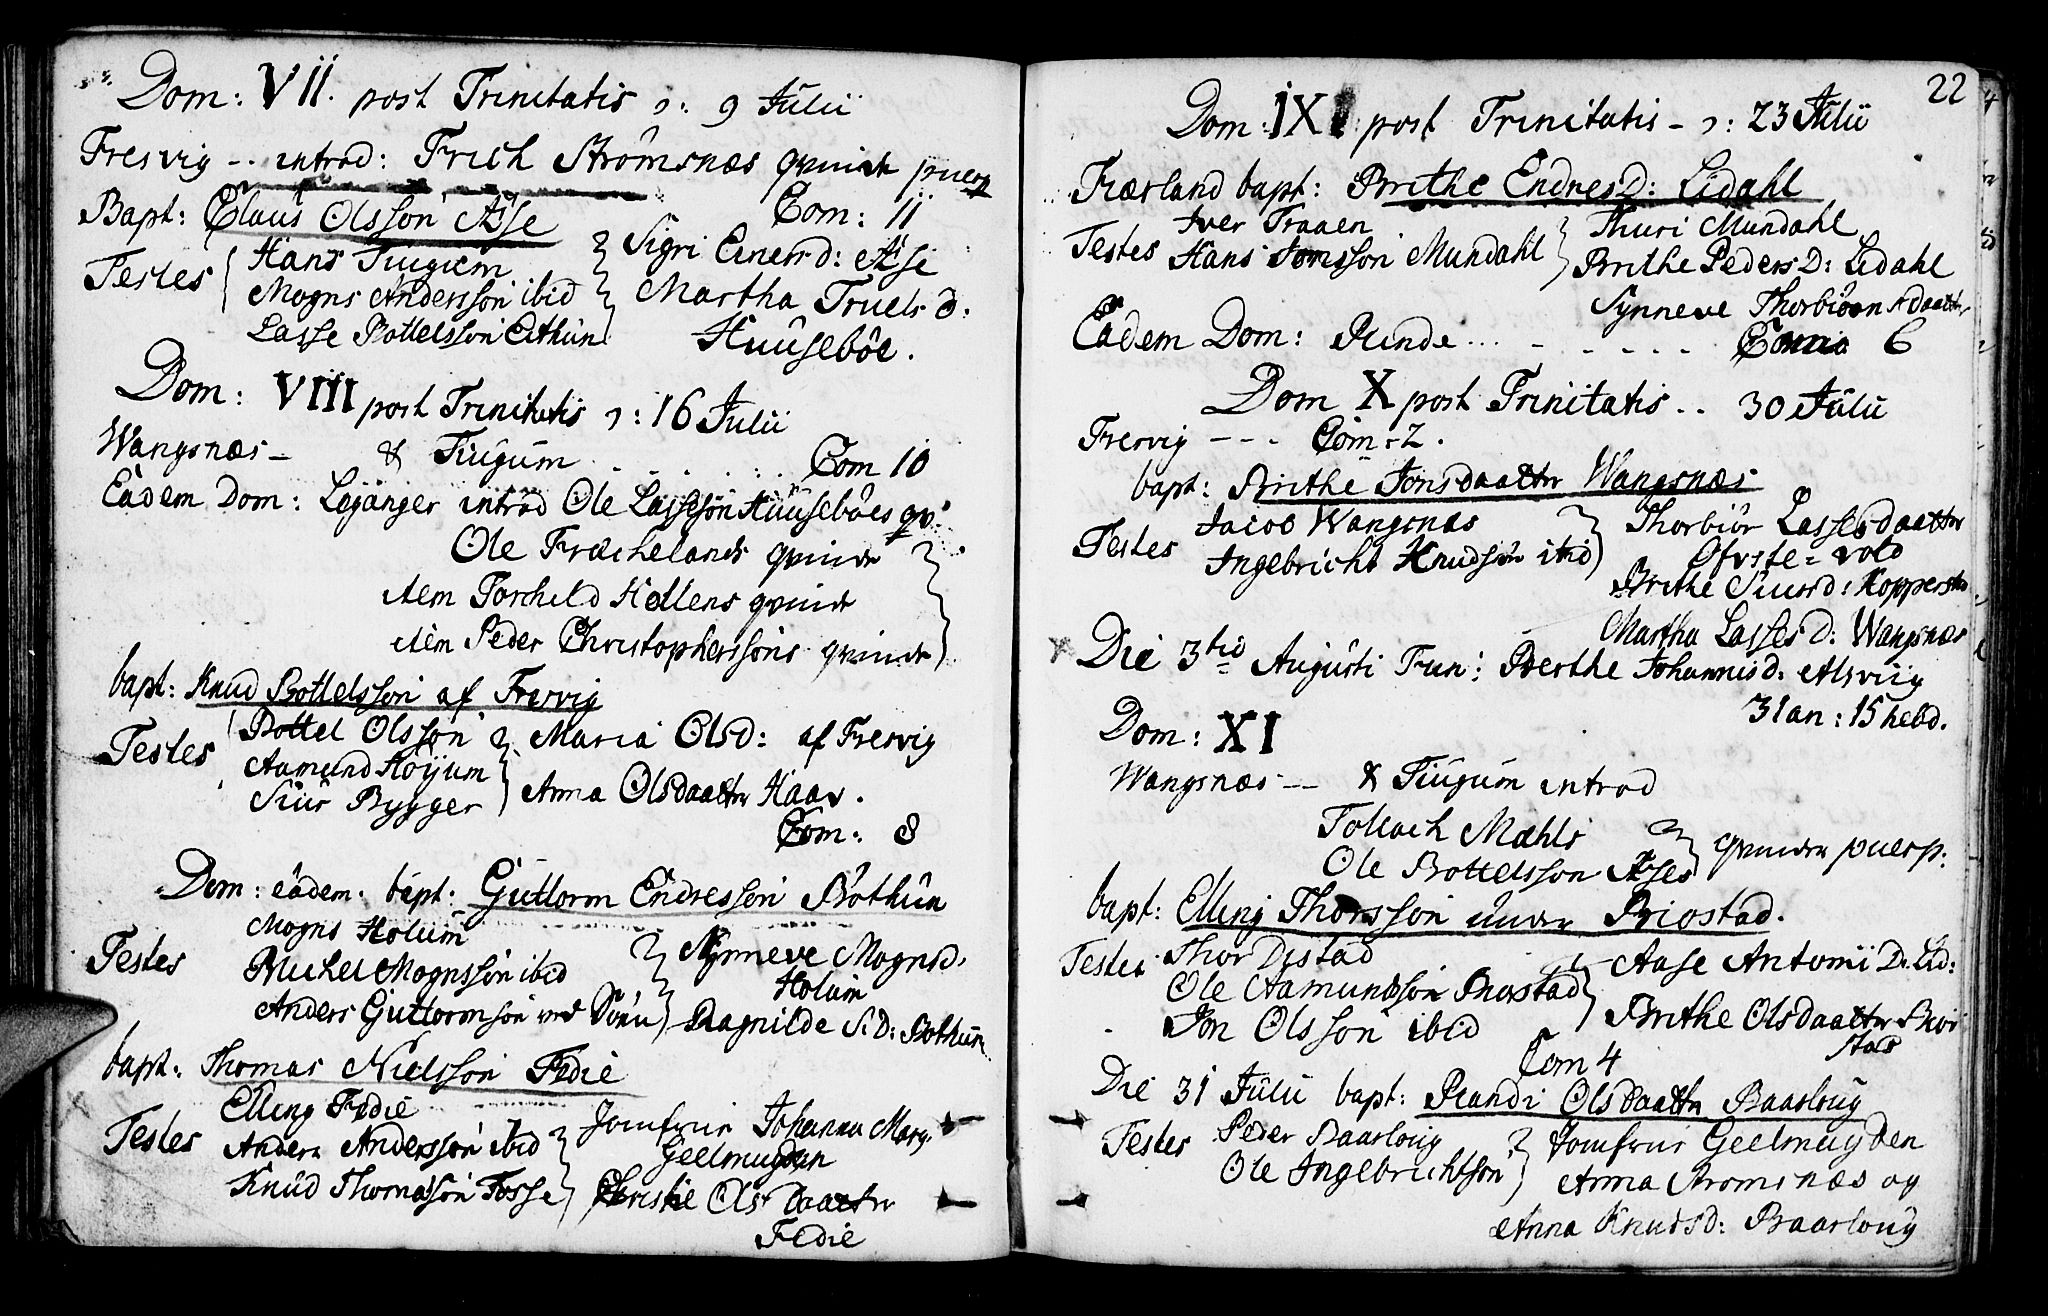 Dom: VII. post Trinitatis ɔ: 9 Julii
Fresvig -- introd: Frich Strømsnæs qvinde puerp
Com: 11
Bapt: Claus Olsson Ase
Testes Hans Tiugum
Mogns Andersson ibid
Lasse Bottelsson Eithun
Sigri Einersd: Ase
Martha Truels d:
Huuseböe.
Dom: VIII post Trinitatis ɔ: 16 Julii
Wangsnæs - & Tiugum . . . . . . Com 10
Eadem Dom: Leganger introd Ole Lassesøn Huuseböes qv:
Ole Fræchelands qvinde
item Torchild Hellens qvinde
item Peder Christopherssöns qvinde
bapt: Knud Bottelsson af Fresvig
Testes Bottel Olsson
Aamund Höyum
Siur Bygger
Maria Olsd: af Fresvig
Anna Olsdaatter Haav.
Com: 8
Dom: eadem. bapt: Guttorm Endresson Bothun
Testes Mogns Holum
Michel Mognsson ibid
Anders Guttormsön ved Söen
Synneve Mognsd.
Holum
Ragnilde S. D: Bothun
bapt: Thomas Nielsson Fedie
Testes Elling Fedie
Anders Andersson ibid
Knud Thomasson Fosse
Jomfrue Johanna Marg.
Geelmuyden
Christie Olsdaatter
Fedie
22
Dom: IX post Trinitatis - ɔ: 23 Julii
Fiærland bapt: Brithe EndresD: Lidahl
Testes Iver Traaen
Hans Jonsson Mundahl
Thuri Mundahl
Brithe PedersD: Lidahl
Synneve Thorbiörnsdaatter
Eadem Dom: Rinde . . . - - - - - Com 6
Dom X post Trinitatis . . 30 Julii
Fresvig - - - Com: 2.
bapt: Brithe Jonsdaatter Wangsnæs
Testes Jacob Wangsnæs
Ingebricht Knudsön ibid
Thorbiör Lassesdaatter
Ofvste=vold
Brithe Siursd: Koppersta
Martha LassesD: Wangsnæs
Die 3tio Augusti Fun: Berthe Johannisd: Alsviig
31 an: 15 hebd.
Dom: XI
Wangsnæs -- & Tiugum introd
Tollach Mæhls
Ole Bottelsson Ases
qvinder puerp:
bapt: Elling Thorsson under Riostad.
Testes Thor Distad
Ole Aamundsön
Jon Olsson ibid
Aase Antonii D. Lid:
Brithe Olsdaatter
Com 4
Die 31 Julii bapt: Randi Olsdaatter Baarloug
Testes Peder Baarloug
Ole Ingebrichtson
Jomfrue Geelmuyden
Anna Stromsnæs og
Anna Knudsd: Baarloug